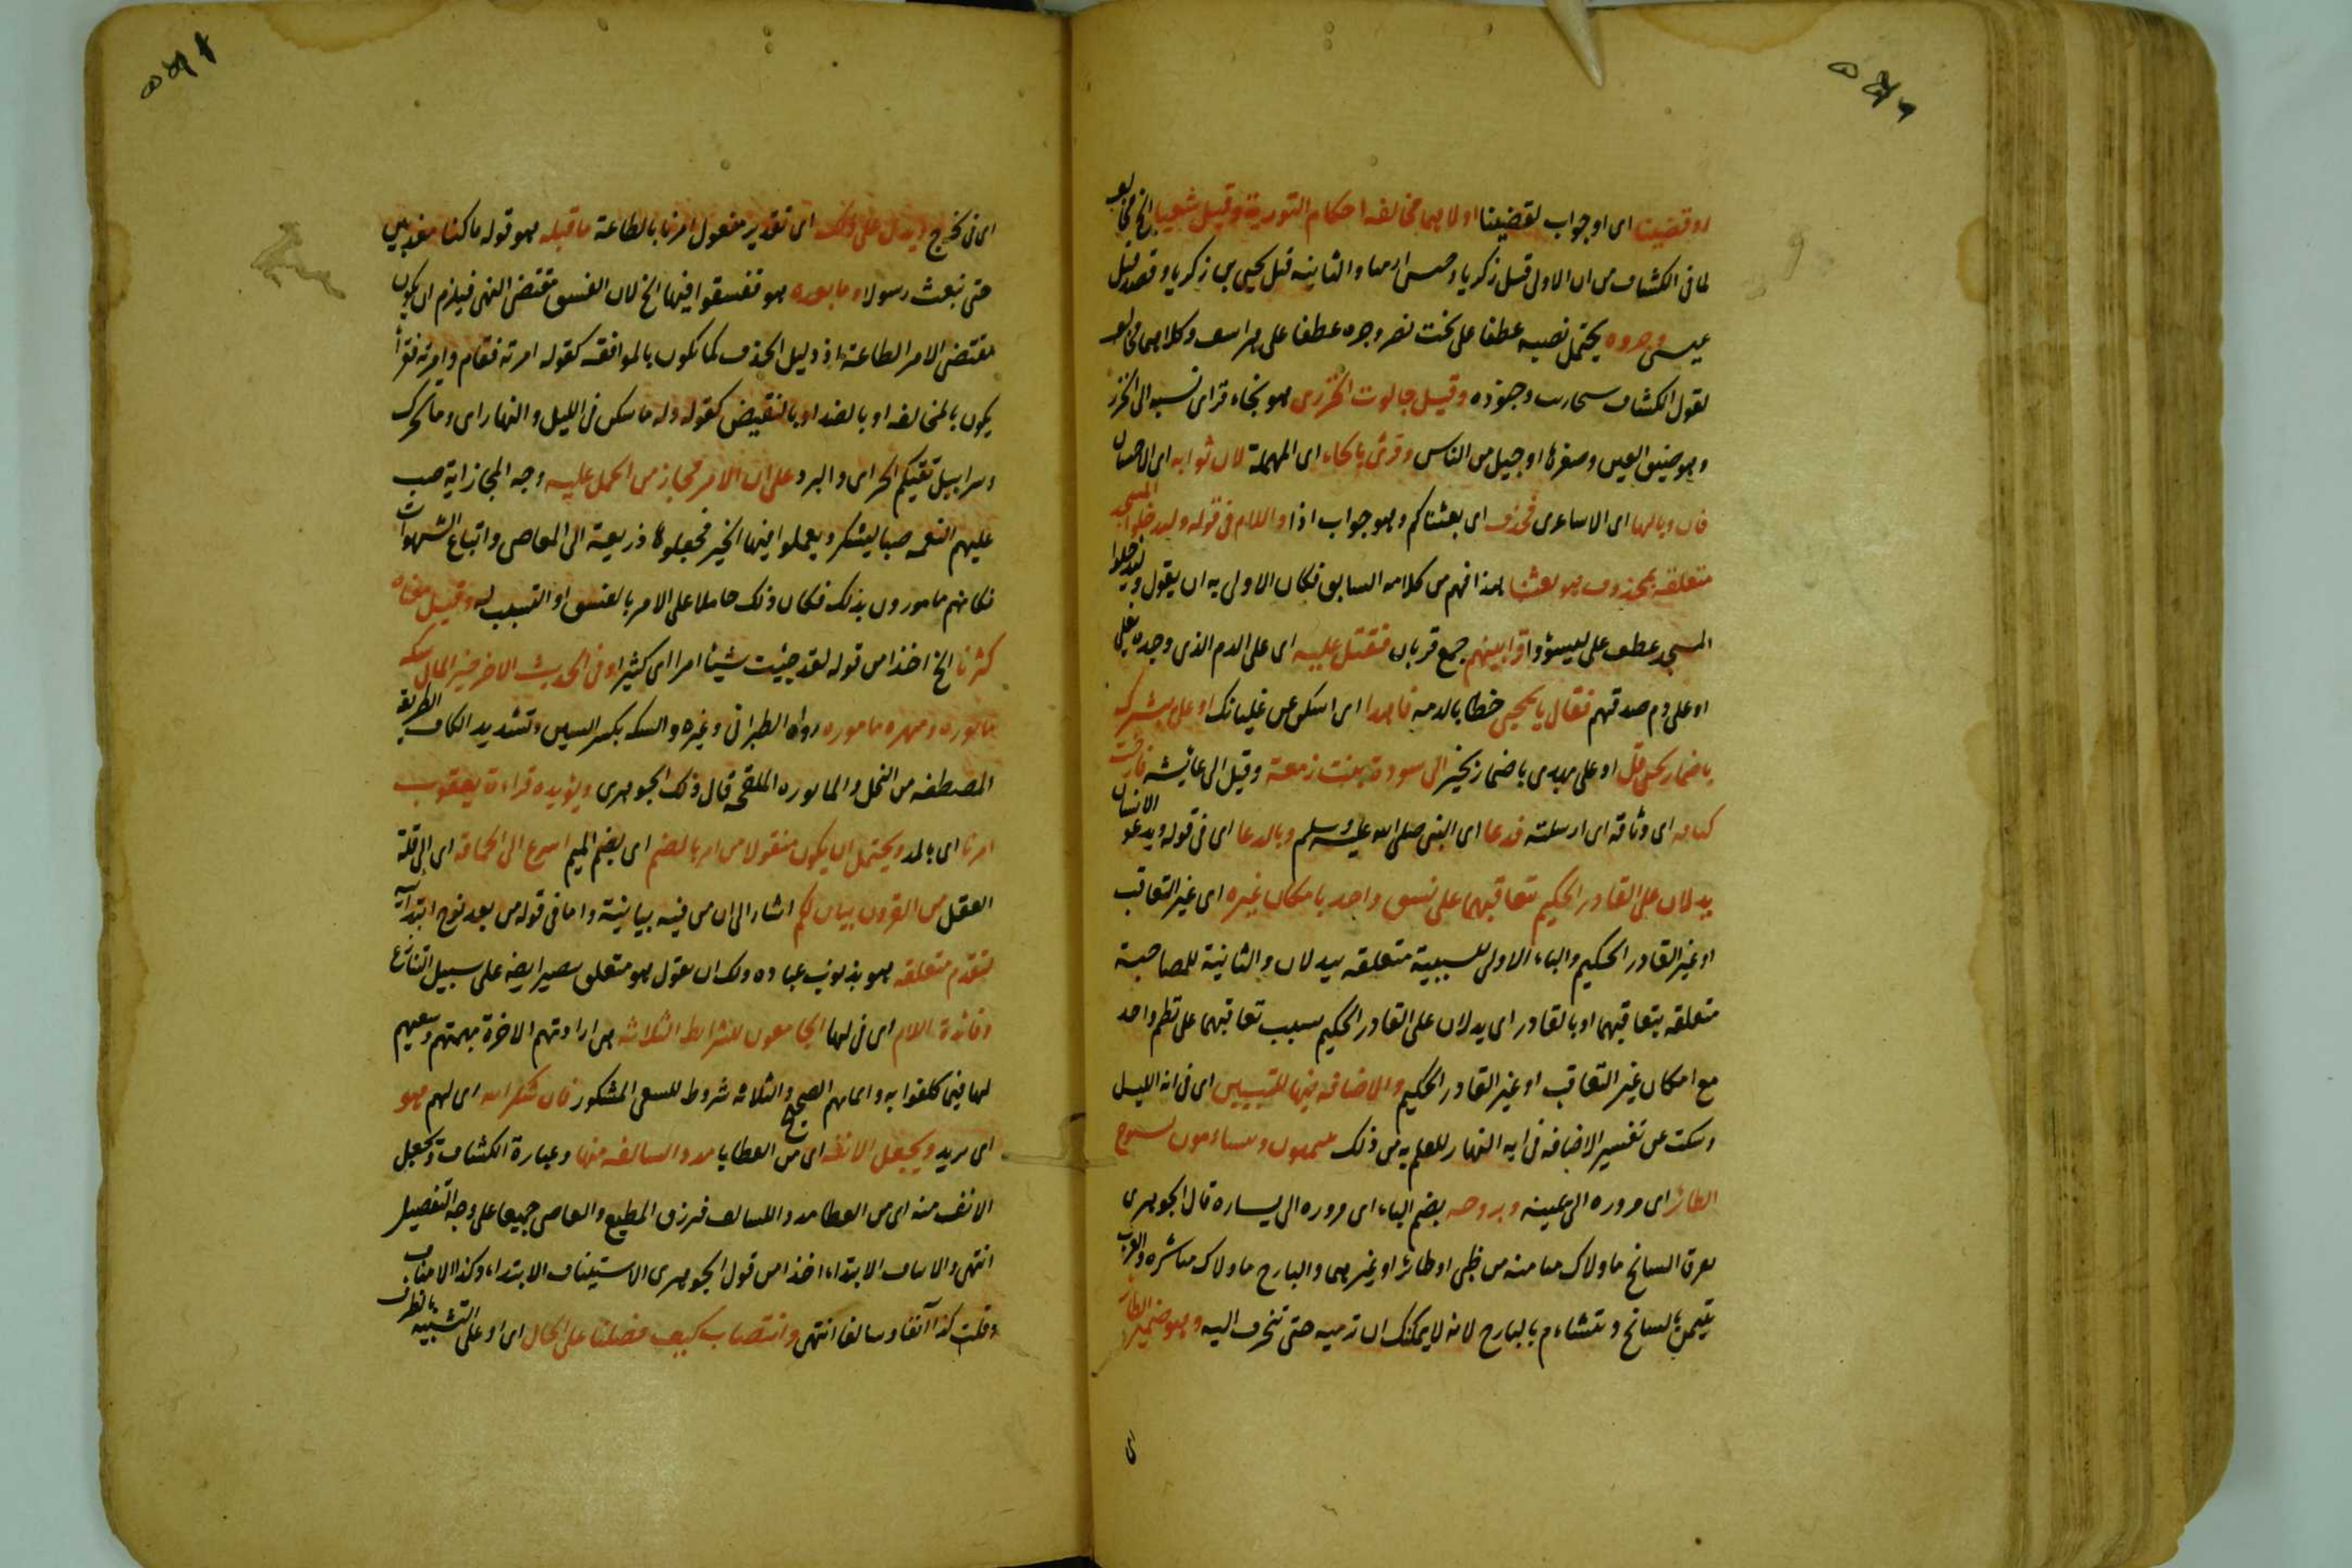 او قضينا اى او جواب لقضينا اولاهما مخالفة احكام التورية وقيل شعيا الخ مخالف
لما فى الكشاف من ان الاولى قتل زكريا وحبس ارميا والثانية قتل يحيى بن زكريا وقصد قتل
عيسى وجنوده يحتمل نصبه عطفا على بخت نصر وجره عطفا على لهراسف وكلاهما مخالف
لقول الكشاف سنحاريب وجنوده وقيل جالوت الخزرى هو بخاء فزاى نسبة الى الخزر
وهو ضيق العين وصغرها او جيل من الناس وقرئ بالحاء اى المهملة لان ثوابه اى الاحسان
فان وبالها اى الاساءة فحذف اى بعثناكم وهو جواب اذا واللام فى قوله وليدخلوا المسجد
متعلقة بمحذوف هو بعثنا هذا فهم من كلامه السابق فكان الاولى به ان يقول وليدخلوا
المسجد عطف على ليسوؤا قرابينهم جمع قربان فقتل عليه اى على الدم الذى وجده يغلى
او على دم صدقهم فقال يا يحيى خطابا لدمه فاهدا اى اسكن عن غليانك او على
باضمار او على يهدى باضمار يخبر الى سودة بنت زمعة وقيل الى عائشة فارخت
كتافه اى وثاقه اى ارسلته فدعا اى النبى صلى الله عليه وسلم وبالدعا اى فى قوله ويدعو الانسان
يدلان على القادر الحكيم بتعاقبهما على نسق واحد بامكان غيره اى غير التعاقب
او غير القادر الحكيم والباء الاولى للسببية متعلقة بيدلان والثانية للمصاحبة
متعلقة بتعاقبهما او بالقادر اى يدلان على القادر الحكيم بسبب تعاقبهما على نظم واحد
مع امكان غير التعاقب او غير القادر الحكيم والاضافة فيهما للتبيين اى فى اية الليل
وسكت عن تفسير الاضافة فى اية النهار للعلم به من ذلك يتيمنون ويتشاءمون بسنوح
الطائر اى مروره الى يمينه وبروحه بضم الباء اى مروره الى يساره قال الجوهرى
السانح ماولاك ميامنه من ظبى او طائر او غيرهما والبارح ماولاك مياسره والعرب
تتيمن بالسانح وتتشاءم بالبارح لانه لا يمكنك ان ترميه حتى تنحرف اليه وهو ضمير الطائر
اى
اى فى نخرج ويدل على ذلك اى تقدير مفعول امرنا بالطاعة ماقبله هو قوله ما كنا معذبين
حتى نبعث رسولا وما بعده هو ففسقوا فيها الخ لان الفسق مقتضى النهى فيلزم ان يكون
مقتضى الامر الطاعة اذ دليل الحذف كما يكون بالموافقة كقوله امرته فقام وامرته فقرأ
يكون بالمخالفة او بالضد او بالنقيض كقوله وله ما سكن فى الليل والنهار اى وما تحرك
وسرابيل تقيكم الحر اى والبرد على ان الامر مجاز من الحمل عليه وجه المجاز اية صب
عليهم النعمة صبا ليشكروا ويعملوا فيها الخير فجعلوها ذريعة الى المعاصى واتباع الشهوات
فكانهم مامورون بذلك فكان ذلك حاملا على الامر بالفسق او التسبب له وقيل معناه
كثرنا الخ اخذا من قوله لقد جئت شيئا امرا اى كثيرا وفى الحديث الاخر خير المال سكة
مابورة ومهرة مامورة رواه الطبرانى وغيره والسكة بكسر السين وتشديد الكاف الطريقة
المصطفة من النخل والمابورة الملقحة قال ذلك الجوهرى ويؤيده قراءة يعقوب
امرنا اى بالمد ويحتمل ان يكون منقولا من امر بالضم اى بضم الميم اسرع الى الحماقة اى الى قلة
العقل من القرون بيان لكم اشار الى ان من فيه بيانية واما فى قوله من بعد نوح ابتدائية
لتقدم متعلقه هو بذنوب عباده ولك ان تقول هو متعلق ببصير ايضا على سبيل التنازع
وفائدة اللام اى فى لها الجامعون للشرائط الثلاثة من ارادتهم الاخرة بهمتهم وسعيهم
لها فيما كلفوا به وايمانهم الصحيح والثلاثة شروط للسعى المشكور فان شكر الله اى لهم هو
اى يريد ويجعل الانفة اى من العطايا مددا لسالفه منها وعبارة الكشاف ونجعل
الانف منه اى من العطا مددا للسالف فنرزق المطيع والعاصى جميعا على وجه التفضيل
انتهى والابتداء اخذا من قول الجوهرى الاستيناف الابتداء وكذا الائتناف
وقلت كذا آنفا وسالفا انتهى وانتصاب كيف فضلنا على الحال اى او على التشبيه بالظرف